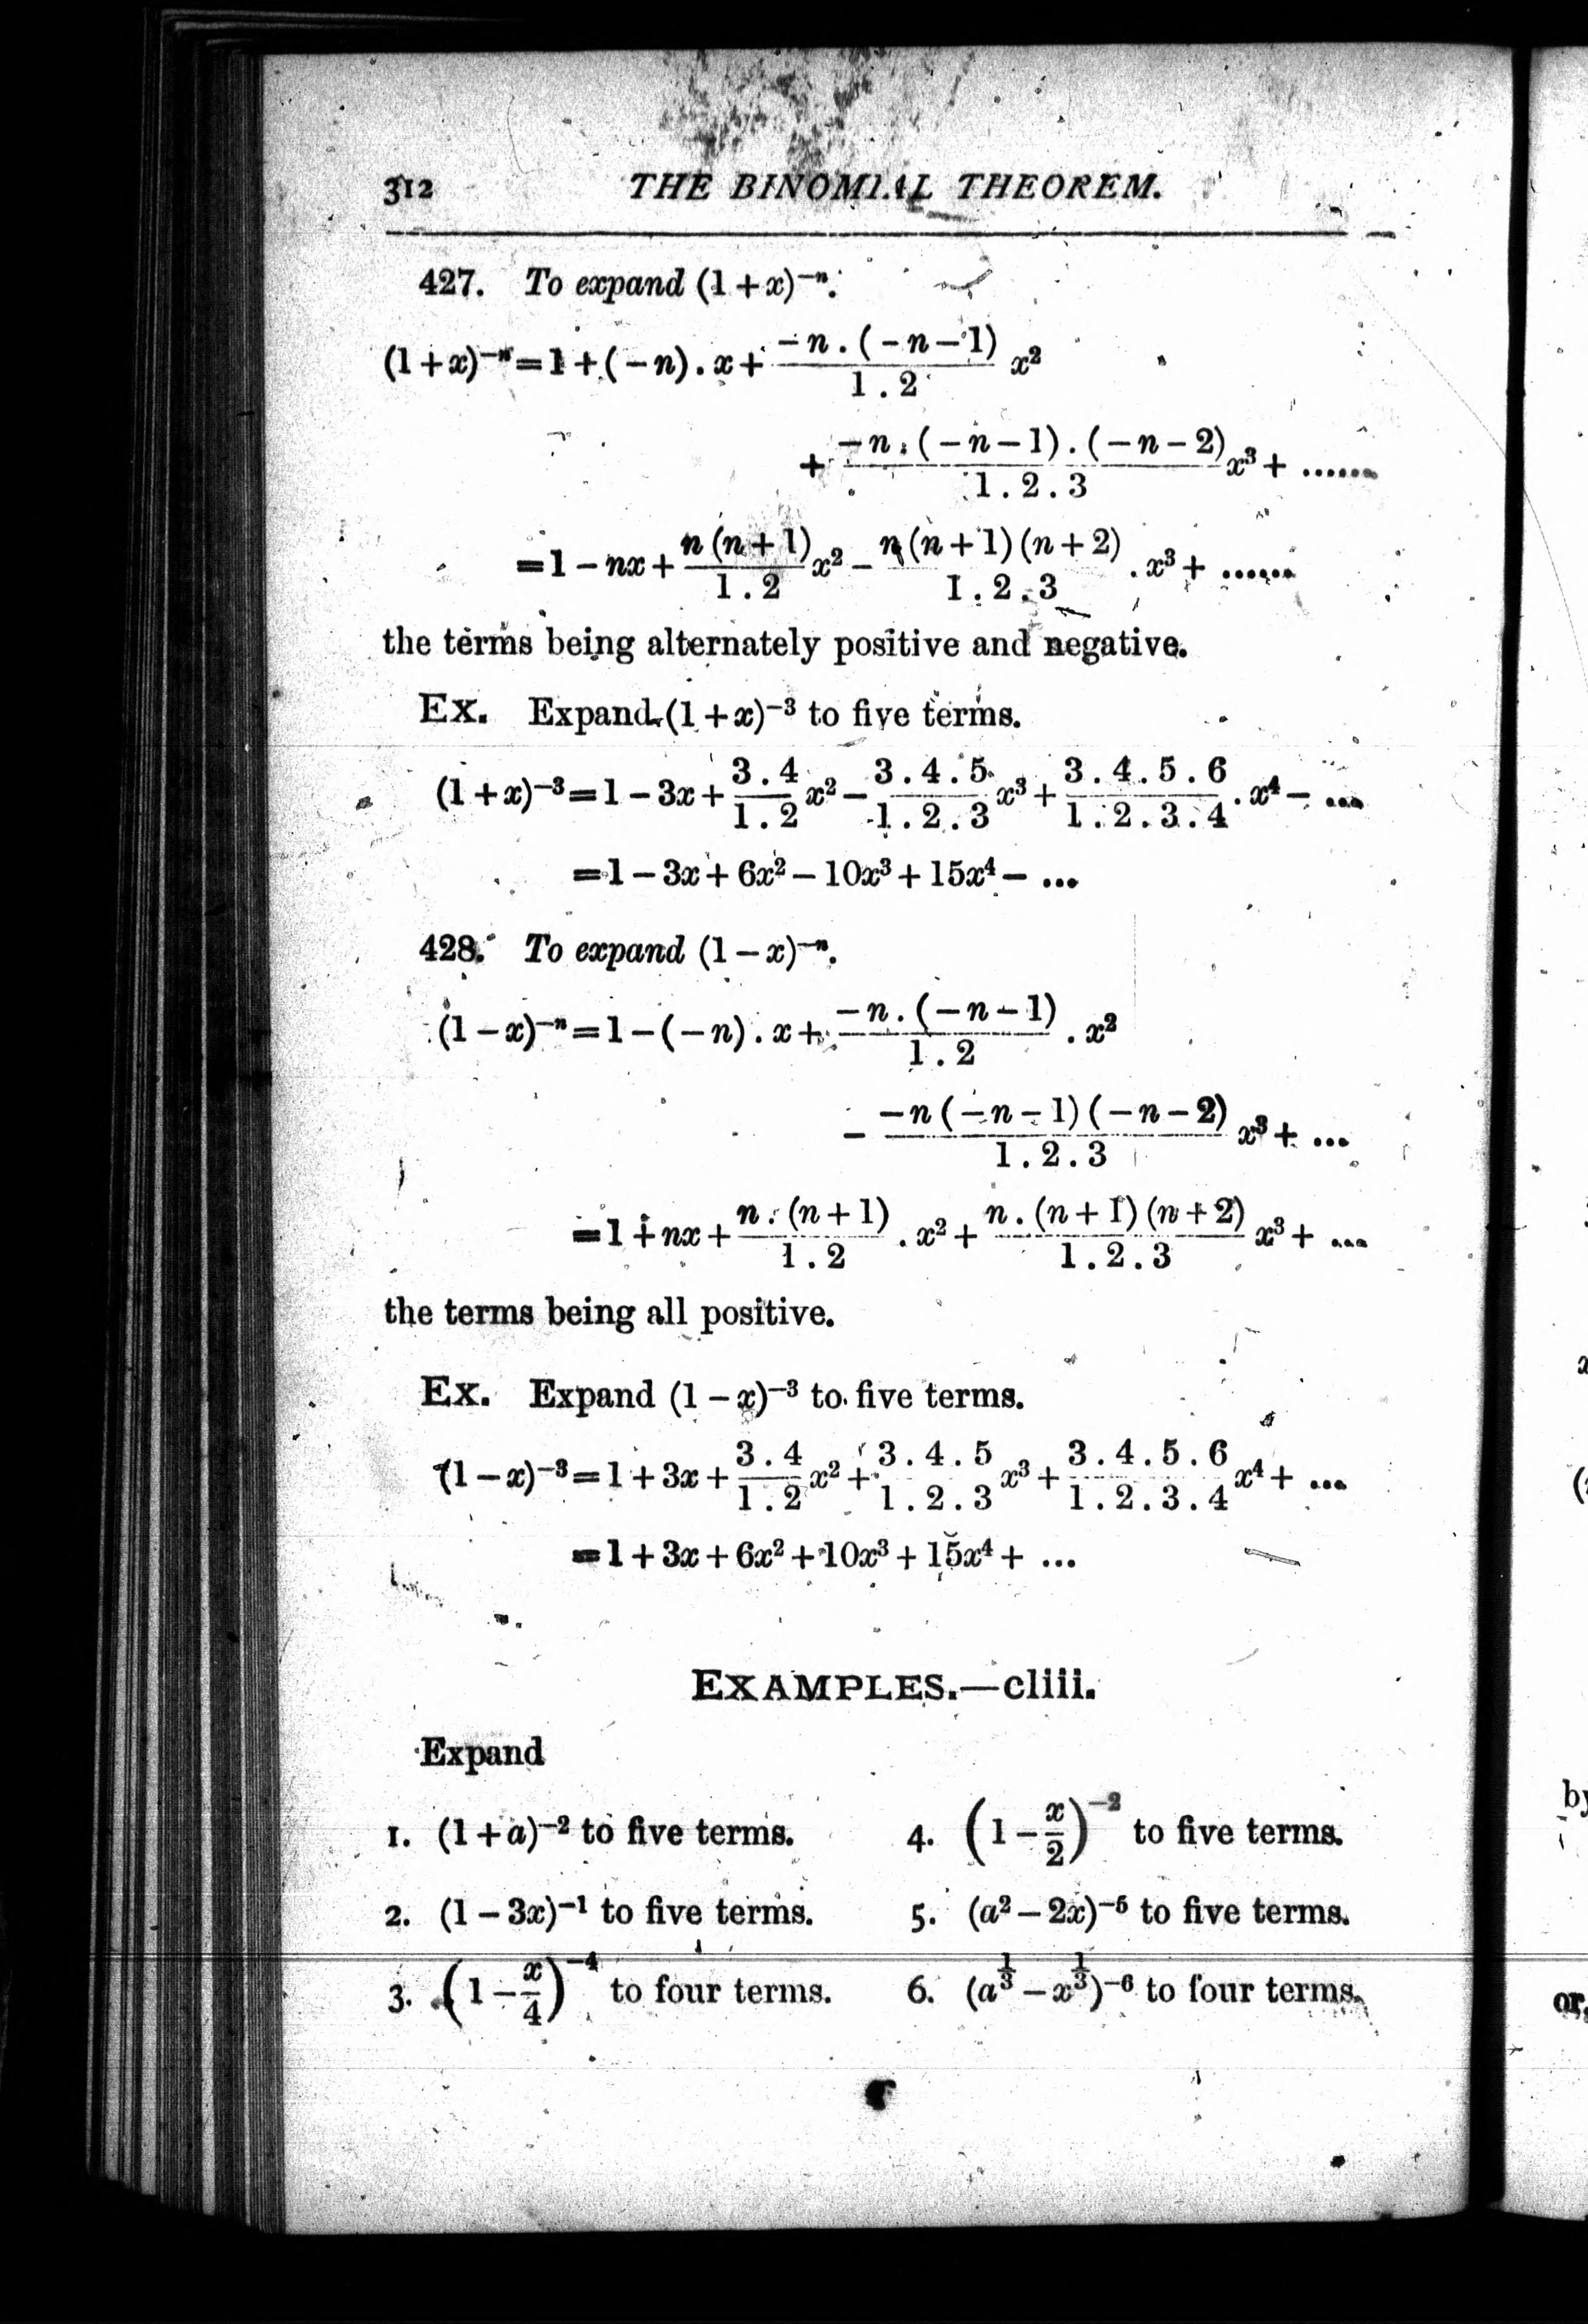 312 THE BINOMIAL THEOREM.
427. To expand (1+x)⁻ⁿ.
(1+x)⁻ⁿ=1+(−n).x+ −n.(−n−1)/1.2 x²
+ −n.(−n−1).(−n−2)/1.2.3 x³+ ......
=1−nx+ n(n+1)/1.2 x²− n(n+1)(n+2)/1.2.3 .x³+ ......
the terms being alternately positive and negative.
Ex. Expand (1+x)⁻³ to five terms.
(1+x)⁻³=1−3x+ 3.4/1.2 x²− 3.4.5/1.2.3 x³+ 3.4.5.6/1.2.3.4 .x⁴− ...
=1−3x+6x²−10x³+15x⁴− ...
428. To expand (1−x)⁻ⁿ.
(1−x)⁻ⁿ=1−(−n).x+ −n.(−n−1)/1.2 .x²
− −n(−n−1)(−n−2)/1.2.3 x³+ ...
=1+nx+ n.(n+1)/1.2 .x²+ n.(n+1)(n+2)/1.2.3 x³+ ...
the terms being all positive.
Ex. Expand (1−x)⁻³ to five terms.
(1−x)⁻³=1+3x+ 3.4/1.2 x²+ 3.4.5/1.2.3 x³+ 3.4.5.6/1.2.3.4 x⁴+ ...
=1+3x+6x²+10x³+15x⁴+ ...
EXAMPLES.—cliii.
Expand
1. (1+a)⁻² to five terms.
2. (1−3x)⁻¹ to five terms.
3. (1−x/4)⁻⁴ to four terms.
4. (1−x/2)⁻² to five terms.
5. (a²−2x)⁻⁵ to five terms.
6. (a^(1/3)−x^(1/3))⁻⁶ to four terms.
by
or,